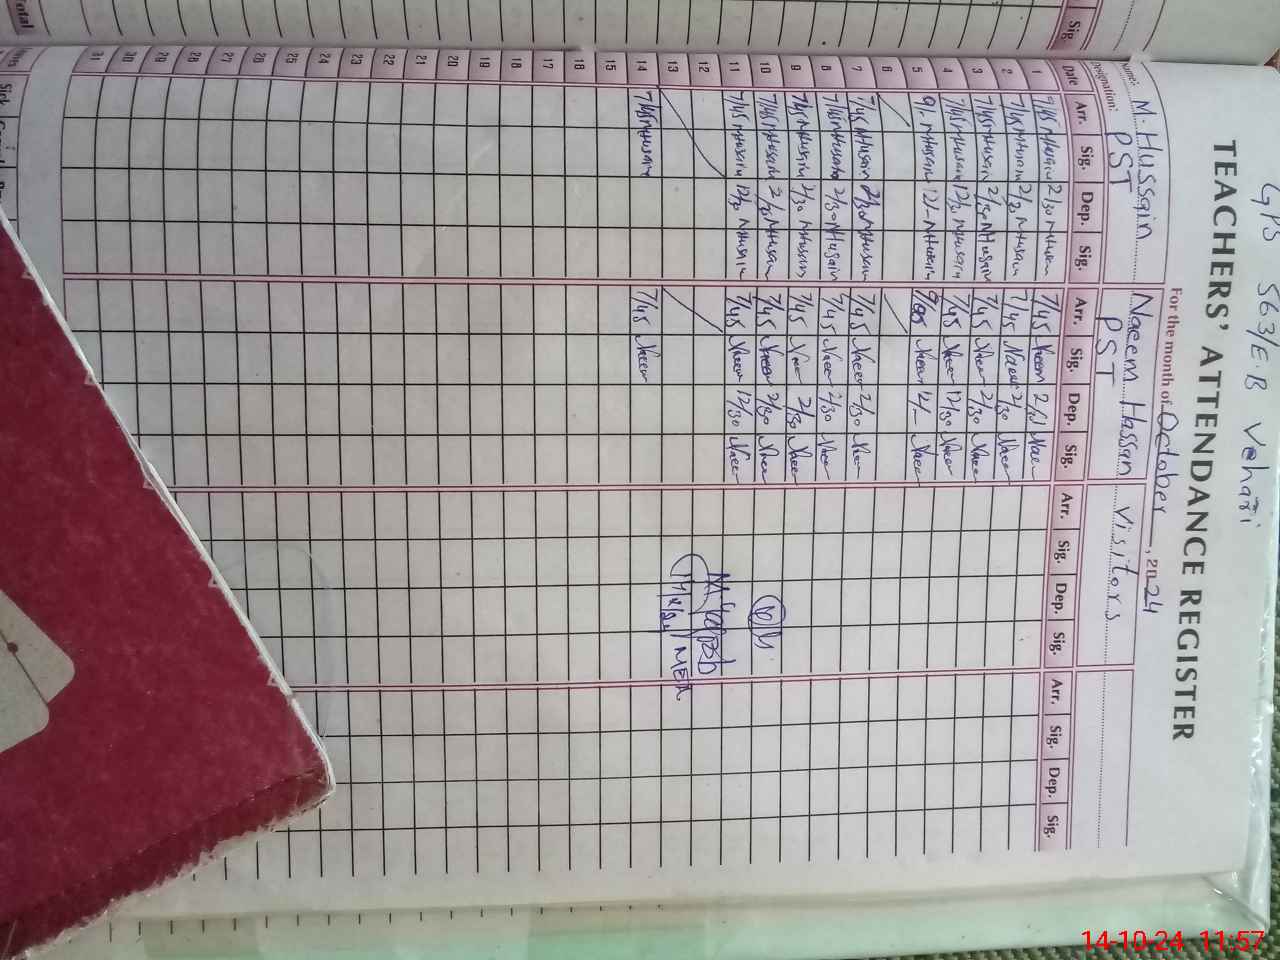 GPS 563/E.B Vehari
TEACHERS' ATTENDANCE REGISTER
For the month of October, 2024
Name: M. Hussain Naeem Hassan Visitors
Designation: PST PST
Date Arr. Sig. Dep. Sig. Arr. Sig. Dep. Sig. Arr. Sig. Dep. Sig. Arr. Sig. Dep. Sig.
1 7/45 MHusain 2/30 MHusain 7/45 Naeem Naeem
2 7/45 MHusain 2/30 MHusain 7/45 Naeem 2/30 Naeem
3 7/45 MHusain 2/30 MHusain 7/45 Naeem 2/30 Naeem
4 7/45 MHusain 12/30 MHusain 7/45 Naeem 12/30 Naeem
5 9/- MHusain 12/- MHusain Naeem 12/- Naeem
6
7 7/45 MHusain 2/30 MHusain 7/45 Naeem 2/30 Naeem
8 7/45 MHusain 2/30 MHusain 7/45 Naeem 2/30 Naeem
9 7/45 MHusain 2/30 MHusain 7/45 Naeem 2/30 Naeem
10 7/45 MHusain 2/30 MHusain 7/45 Naeem 2/30 Naeem
11 7/45 MHusain 12/30 MHusain 7/45 Naeem 12/30 Naeem
12
13 MEA
14 7/45 MHusain 7/45 Naeem
15
16
17
18
19
20
21
22
23
24
25
26
27
28
29
30
31
Sig.
Total
Sick
14-10-24 11:57